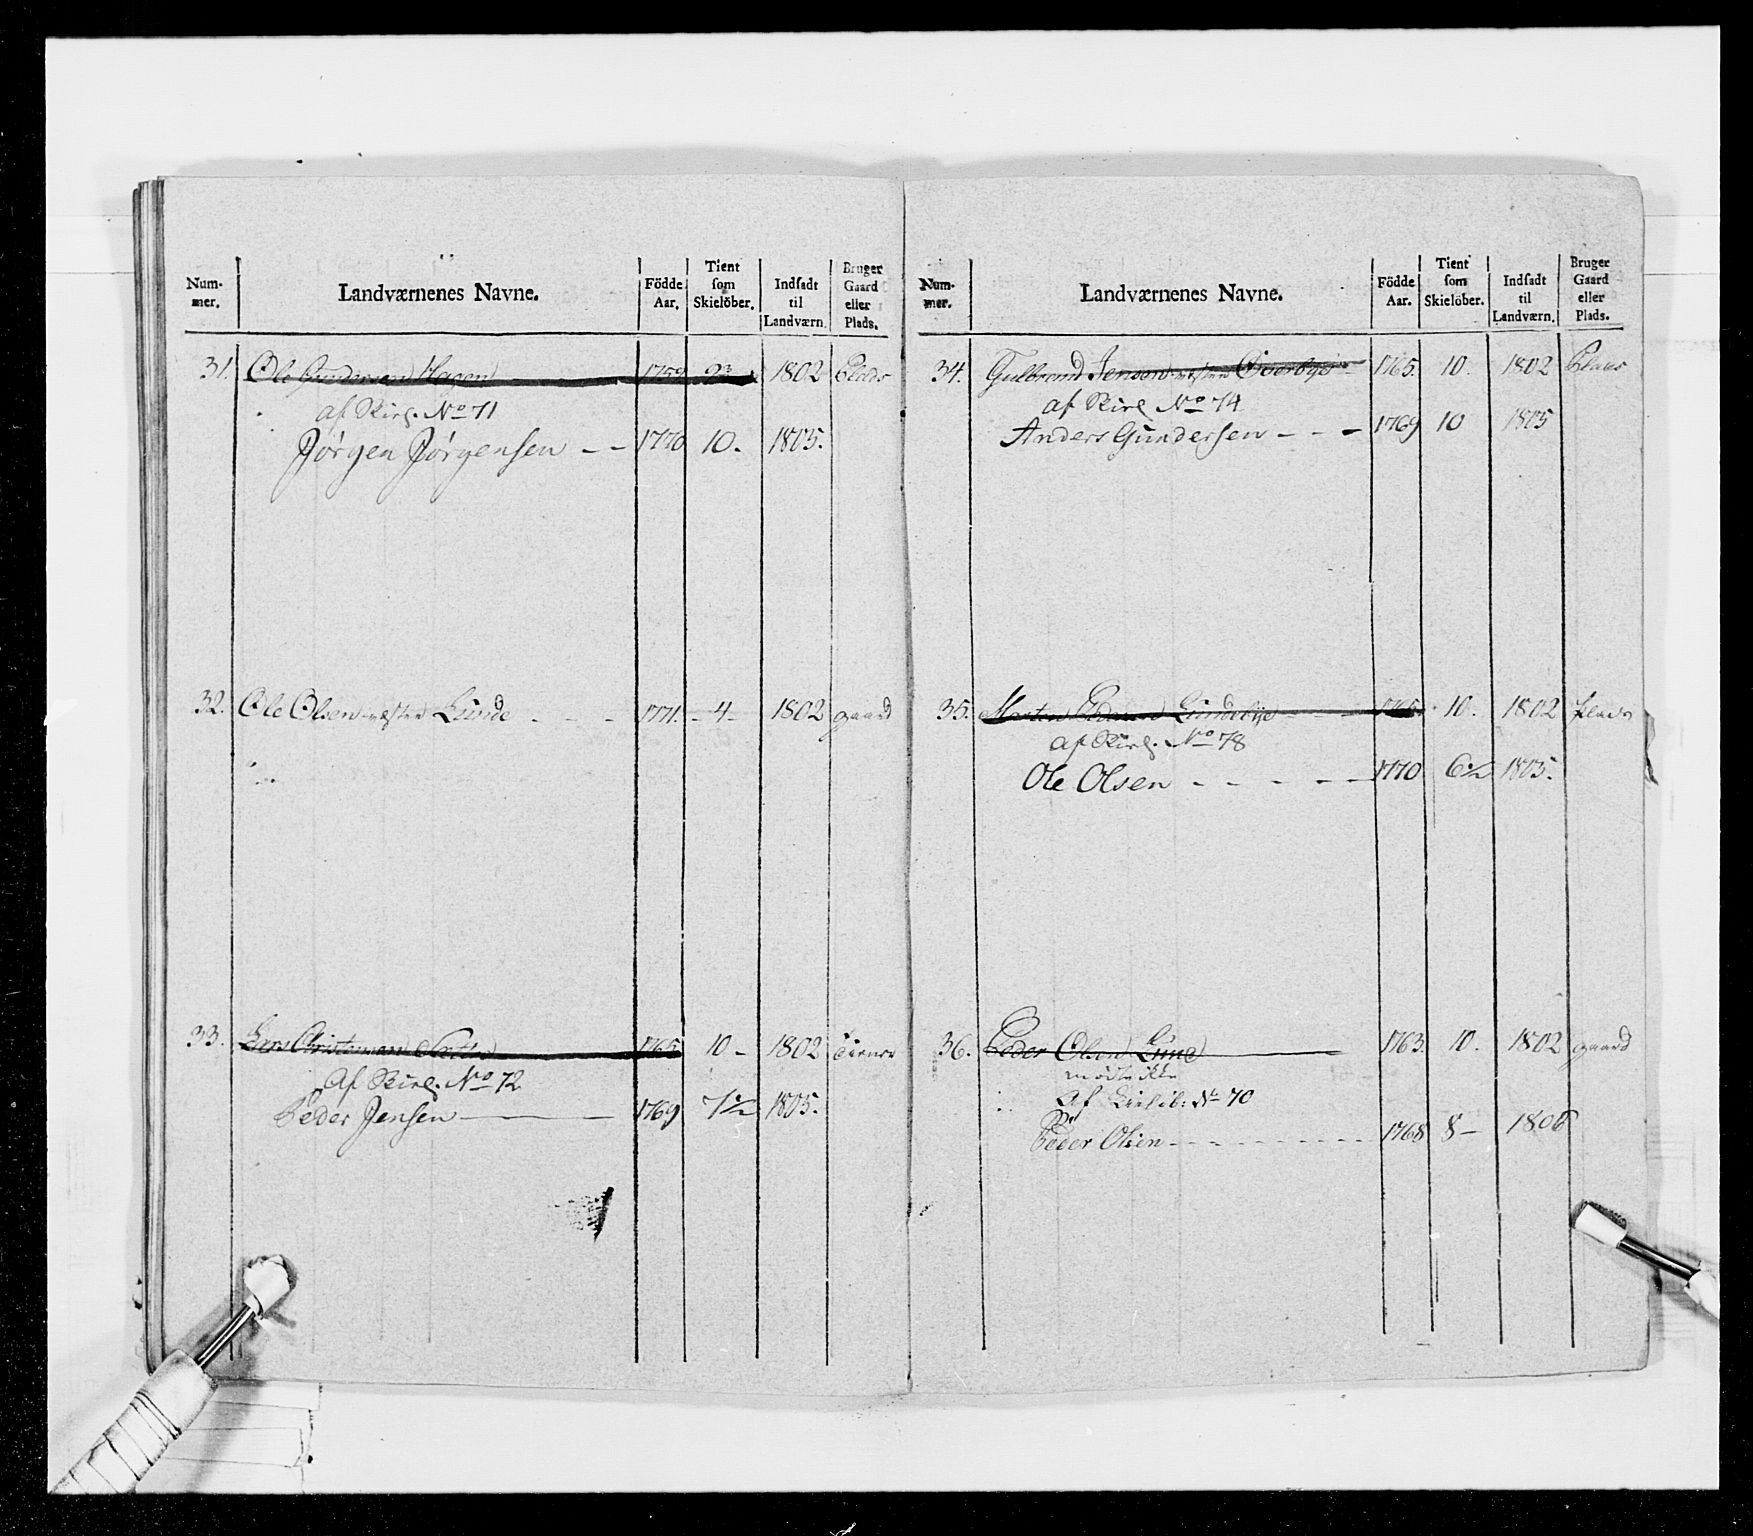 Num-
mer.
Landværnenes Navne.
Födde
Aar.
Tient
som
Skielöber.
Indsadt
til
Landværn.
Bruger
Gaard
eller
Plads.
31. Ole Gundersen Hagen 1759 23 1802 Plads
af Skirl. No 71
Jørgen Jørgensen - - 1770 10. 1805.
32. Ole Olsen vesten Lunde - - - 1771. - 4 - 1802 gaard
33. Lars Christensen 1765 10 - 1802
Af Skirl. No 72
Peder Jensen - - 1769 7½ 1805.
Num-
mer.
Landværnenes Navne.
Födde
Aar.
Tient
som
Skielöber.
Indsadt
til
Landværn.
Bruger
Gaard
eller
Plads.
34. Gulbrand Jensen vesten Overbye 1765. 10. 1802 Plads
af Skirl. No 74
Anders Gundersen - - - 1769 10 1805
35. Morten Lundebye 1765 10. 1802 plads
af Skirl. No 78
Ole Olsen - - - - - 1770 6½ 1805.
36. Peder Olsen Lund 1763. 10. 1802 gaard
mödte ikke
Af No 70
Peder Olsen - - - - - - - - 1768 8 - 1806